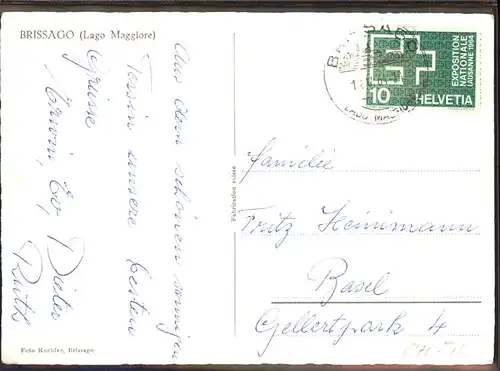 BRISSAGO (Lago Maggiore)
Aus dem schönen sonnigen
Tessin unsere besten
Grüsse
Erwin, Eo, Dieter
Ruth
Foto Kuchler, Brissago
Fabrication suisse
BRISSAGO
LAGO MAGGIORE
EXPOSITION
NATIONALE
LAUSANNE 1964
10 HELVETIA
Familie
Fritz Heinimann
Basel
Gellertpark 4
CH-TI